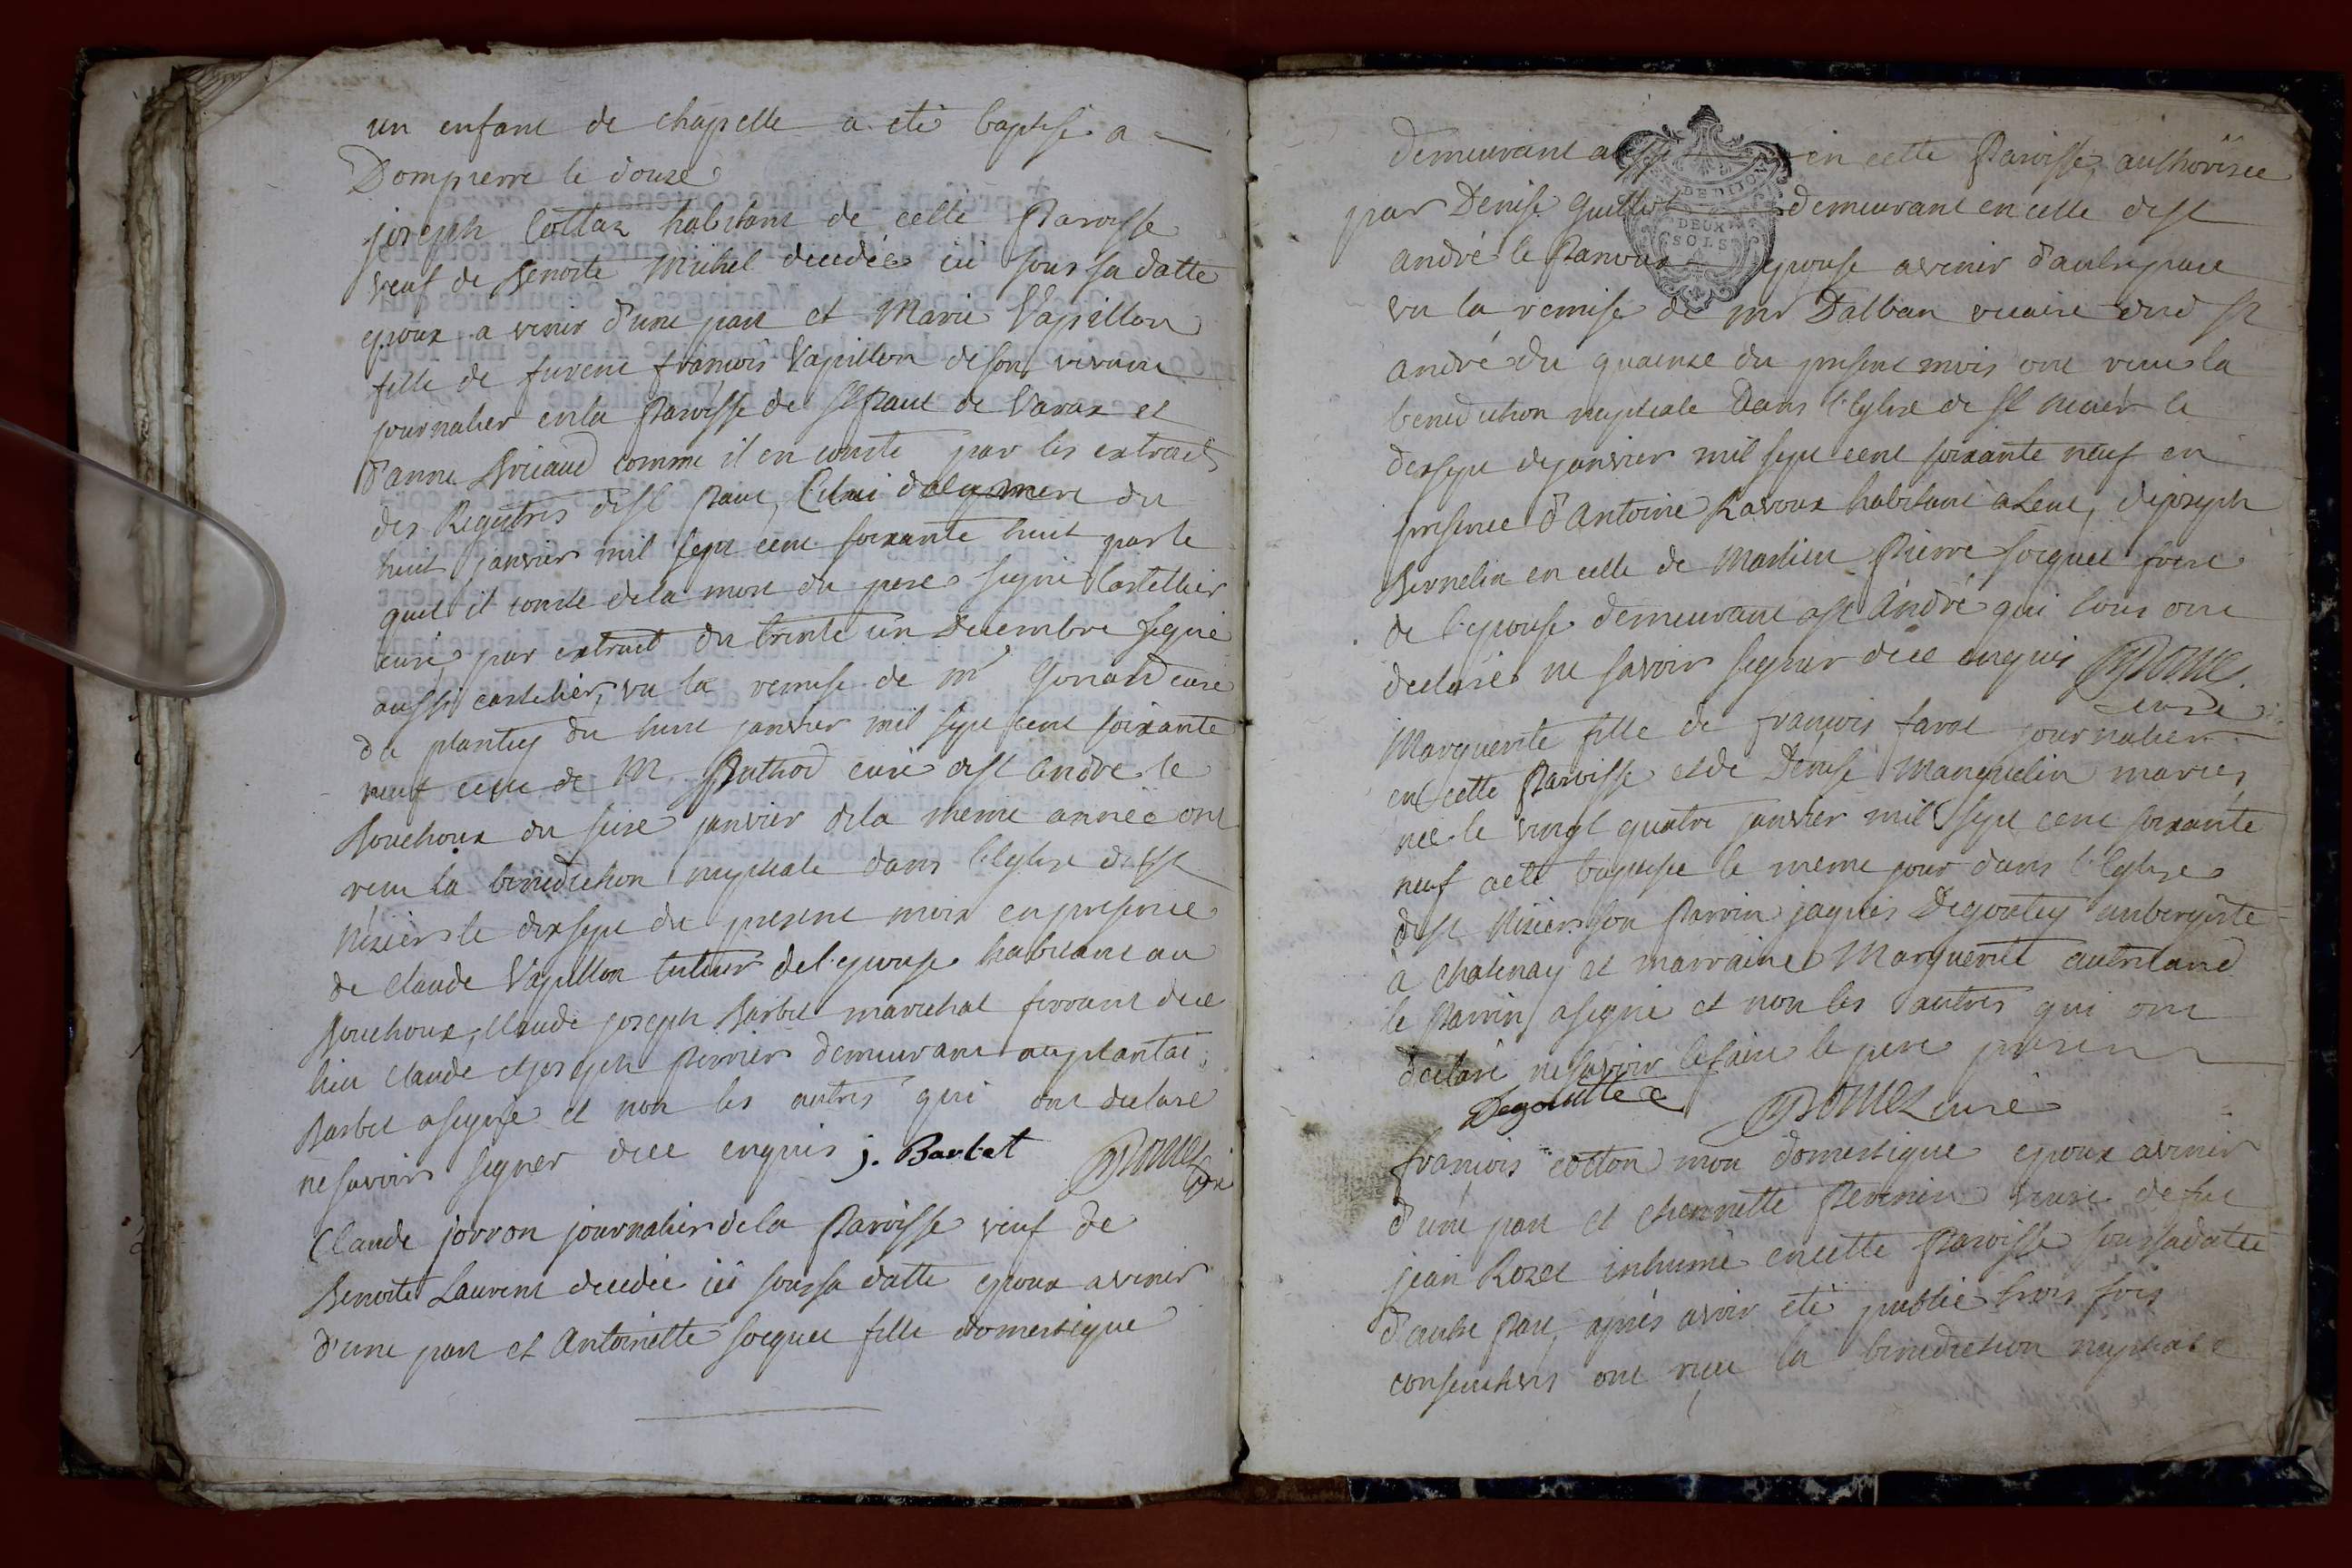 un enfant de chapelle a eté baptisé a
Dompierre le douze
joseph Cottaz habitant de cette Paroisse
veuf de Benoite Michel decedée ici sous sa datte
epoux a venir d'une part et Marie Vapillon
fille de furent françois Vapillon de son vivant
journalier en la Paroisse de St Paul de Varax et
d'anne Briaud comme il en conste par les extraits
des Registres de St Paul, Celui de la mere du
huit janvier mil sept cent soixante huit par le
quel il conste de la mort du pere signé Castellier
curé par extrait du trente un Decembre signé
aussi castelier, vu la remise de mr Gonard curé
du plantey du huit janvier mil sept cent soixante
neuf celle de M. Puthod curé de St andré le
Bouchoux du seize janvier de la meme année ont
recu la benediction nuptiale dans l'Eglise de St
Nizier le dix sept du present mois en presence
de Claude Vapillon tuteur de l'epouse habitant au
Bouchoux, Claude joseph Barbet marechal ferrant du dit
lieu Claude et joseph Perrier demeurant au plantai
Barbet a signé et non les autres qui ont declaré
ne savoir signer de ce enquis j. Barbet
curé
Claude jorron journalier de la Paroisse veuf de
Benoite Laurent decedée ici sous sa datte epoux a venir
d'une part et Antoinette Socquet fille domestique
demeurant a en cette Paroisse, authorisée
par Denise demeurant en celle de St
andré le Panoux epouse a venir d'autre part
vu la remise de mr Dalban vicaire du d St
andré du quinze du present mois ont recu la
benediction nuptiale Dans l'Eglise de St Nizier le
dix sept de janvier mil sept cent soixante neuf en
presence d'Antoine Ravoux habitant a Lent, de joseph
Bernelin en celle de Marlieu Pierre Socquet frere
de l'epouse demeurant a St André qui tous ont
declaré ne savoir signer de ce enquis
curé
Marguerite fille de françois favre journalier
en cette Paroisse et de Denise Manguelin mariés,
née le vingt quatre janvier mil sept cent soixante
neuf a eté baptisée le meme jour dans l'Eglise
de St Nizier son Parrin jaques Degoutey aubergiste
à Chatenay et marraine Marguerite
le Parrin a signé et non les autres qui ont
declaré ne savoir le faire le pere present
Degoutte curé
françois cotton mon domestique epoux a venir
d'une part et etiennette Pevenin veuve de fut
jean Rozet inhumé en cette Paroisse sous sa datte
d'autre Part, après avoir eté publié trois fois
consecutives ont reçu la benediction nuptiale
DE DIJON
DEUX
SOLS